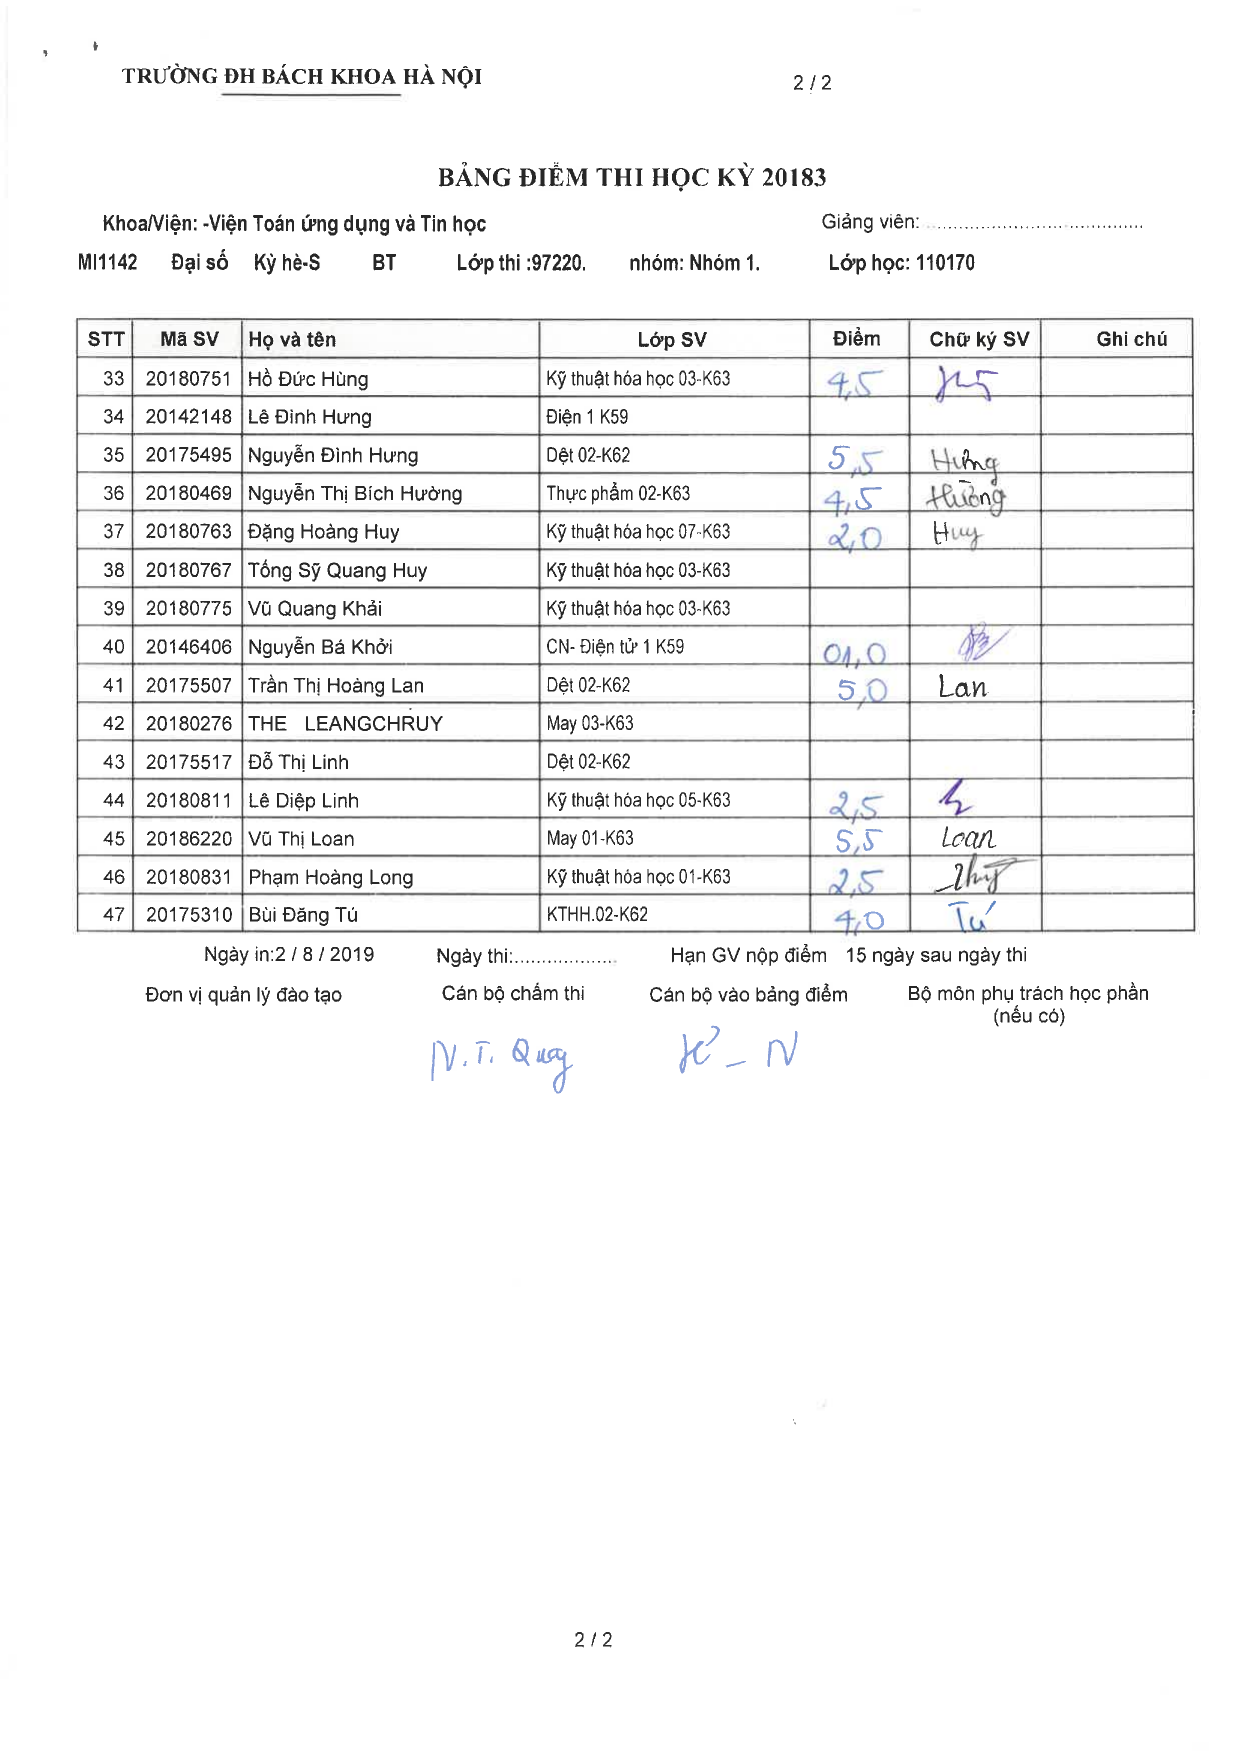 TRƯỜNG ĐH BÁCH KHOA HÀ NỘI 2 / 2
BẢNG ĐIỂM THI HỌC KỲ 20183
Khoa/Viện: -Viện Toán ứng dụng và Tin học Giảng viên: ........................................
MI1142 Đại số Kỳ hè-S BT Lớp thi :97220. nhóm: Nhóm 1. Lớp học: 110170
STT Mã SV Họ và tên Lớp SV Điểm Chữ ký SV Ghi chú
33 20180751 Hồ Đức Hùng Kỹ thuật hóa học 03-K63 4,5
34 20142148 Lê Đình Hưng Điện 1 K59
35 20175495 Nguyễn Đình Hưng Dệt 02-K62 5,5 Hưng
36 20180469 Nguyễn Thị Bích Hường Thực phẩm 02-K63 4,5 Hường
37 20180763 Đặng Hoàng Huy Kỹ thuật hóa học 07-K63 2,0 Huy
38 20180767 Tống Sỹ Quang Huy Kỹ thuật hóa học 03-K63
39 20180775 Vũ Quang Khải Kỹ thuật hóa học 03-K63
40 20146406 Nguyễn Bá Khởi CN- Điện tử 1 K59 01,0
41 20175507 Trần Thị Hoàng Lan Dệt 02-K62 5,0 Lan
42 20180276 THE LEANGCHRUY May 03-K63
43 20175517 Đỗ Thị Linh Dệt 02-K62
44 20180811 Lê Diệp Linh Kỹ thuật hóa học 05-K63 2,5
45 20186220 Vũ Thị Loan May 01-K63 5,5 Loan
46 20180831 Phạm Hoàng Long Kỹ thuật hóa học 01-K63 2,5
47 20175310 Bùi Đăng Tú KTHH.02-K62 4,0 Tú
Ngày in:2 / 8 / 2019 Ngày thi:................... Hạn GV nộp điểm 15 ngày sau ngày thi
Đơn vị quản lý đào tạo Cán bộ chấm thi Cán bộ vào bảng điểm Bộ môn phụ trách học phần
(nếu có)
N.T.
2 / 2